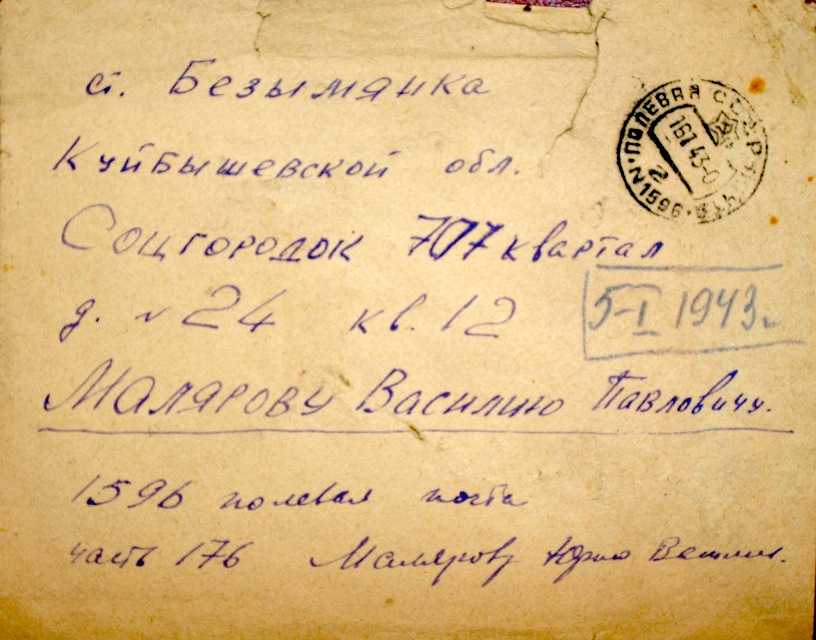 ст. Безымянка
Куйбышевской обл.
Соцгородок 707 квартал
д. № 24 кв. 12
5-I 1943г.
Малярову Василию Павловичу.
1596 полевая почта
часть 176 Малярову Юрию
ПОЛЕВАЯ
16 1 43
N1596